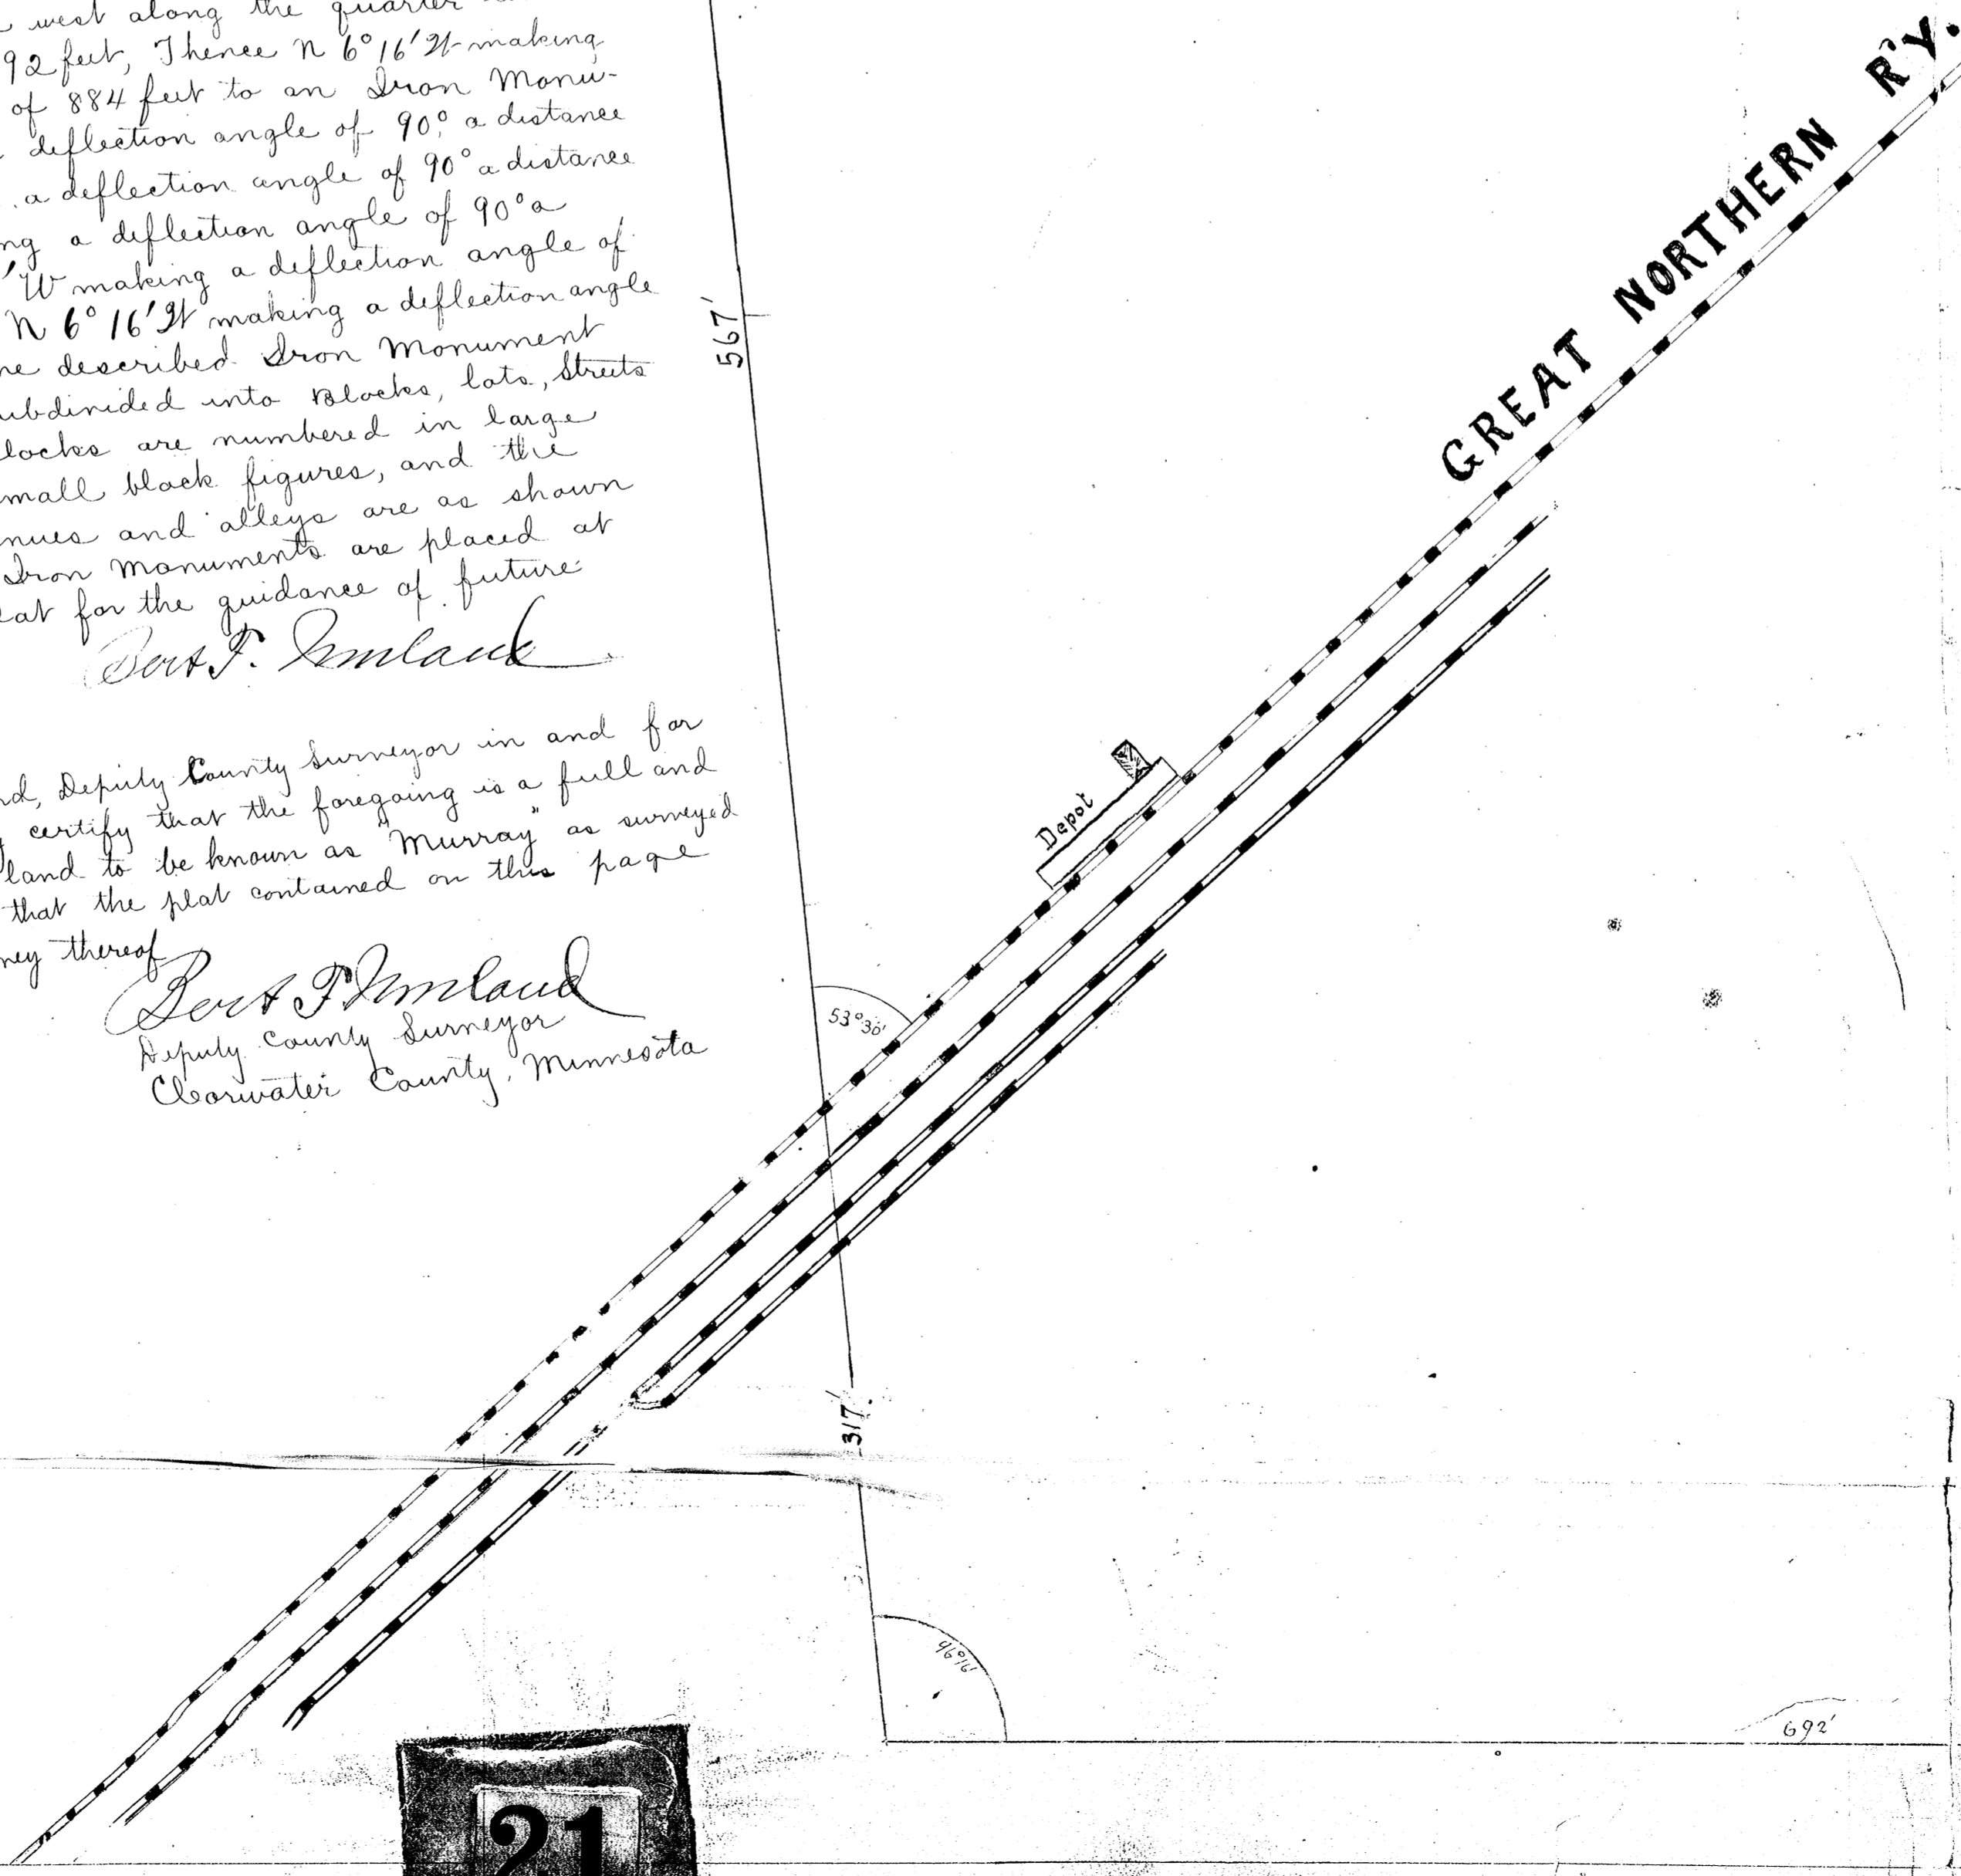 west along the quarter
92 feet, Thence N 6° 16' W making
of 884 feet to an Iron Monu-
deflection angle of 90° a distance
a deflection angle of 90° a distance
ng a deflection angle of 90° a
'W making a deflection angle of
N 6° 16' W making a deflection angle
ne described Iron Monument
ubdivided into Blocks, lots, Streets
locks are numbered in large
mall black figures, and the
nues and alleys are as shown
Iron Monuments are placed at
at for the guidance of future
Bert F.
nd, Deputy County Surveyor in and for
certify that the foregoing is a full and
land to be known as "Murray" as surveyed
that the plat contained on this page
ney thereof
Bert F.
Deputy County Surveyor
Clearwater County, Minnesota
567'
GREAT NORTHERN R'Y.
Depot
53°30'
317'
692'
21